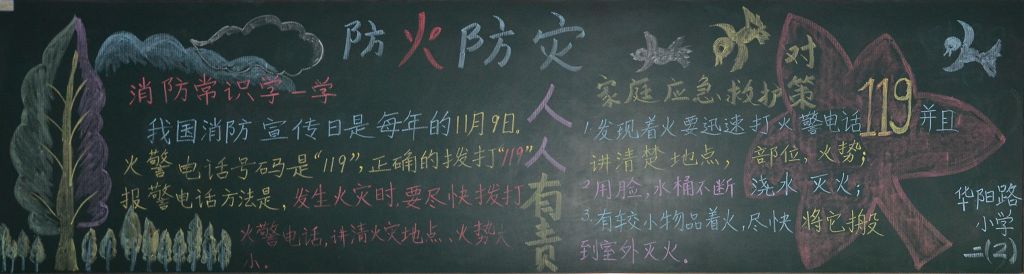 防火防灾
人人有责
消防常识学一学
我国消防宣传日是每年的11月9日。
火警电话号码是“119”,正确的拨打“119”
报警电话方法是,发生火灾时,要尽快拨打
火警电话,讲清火灾地点、火势大
小。
家庭应急救护策
对
1.发现着火要迅速打火警电话119并且
讲清楚地点,部位,火势;
2用脸,水桶不断浇水灭火;
3.有较小物品着火,尽快将它搬
到室外灭火。
华阳路
小学
二(2)